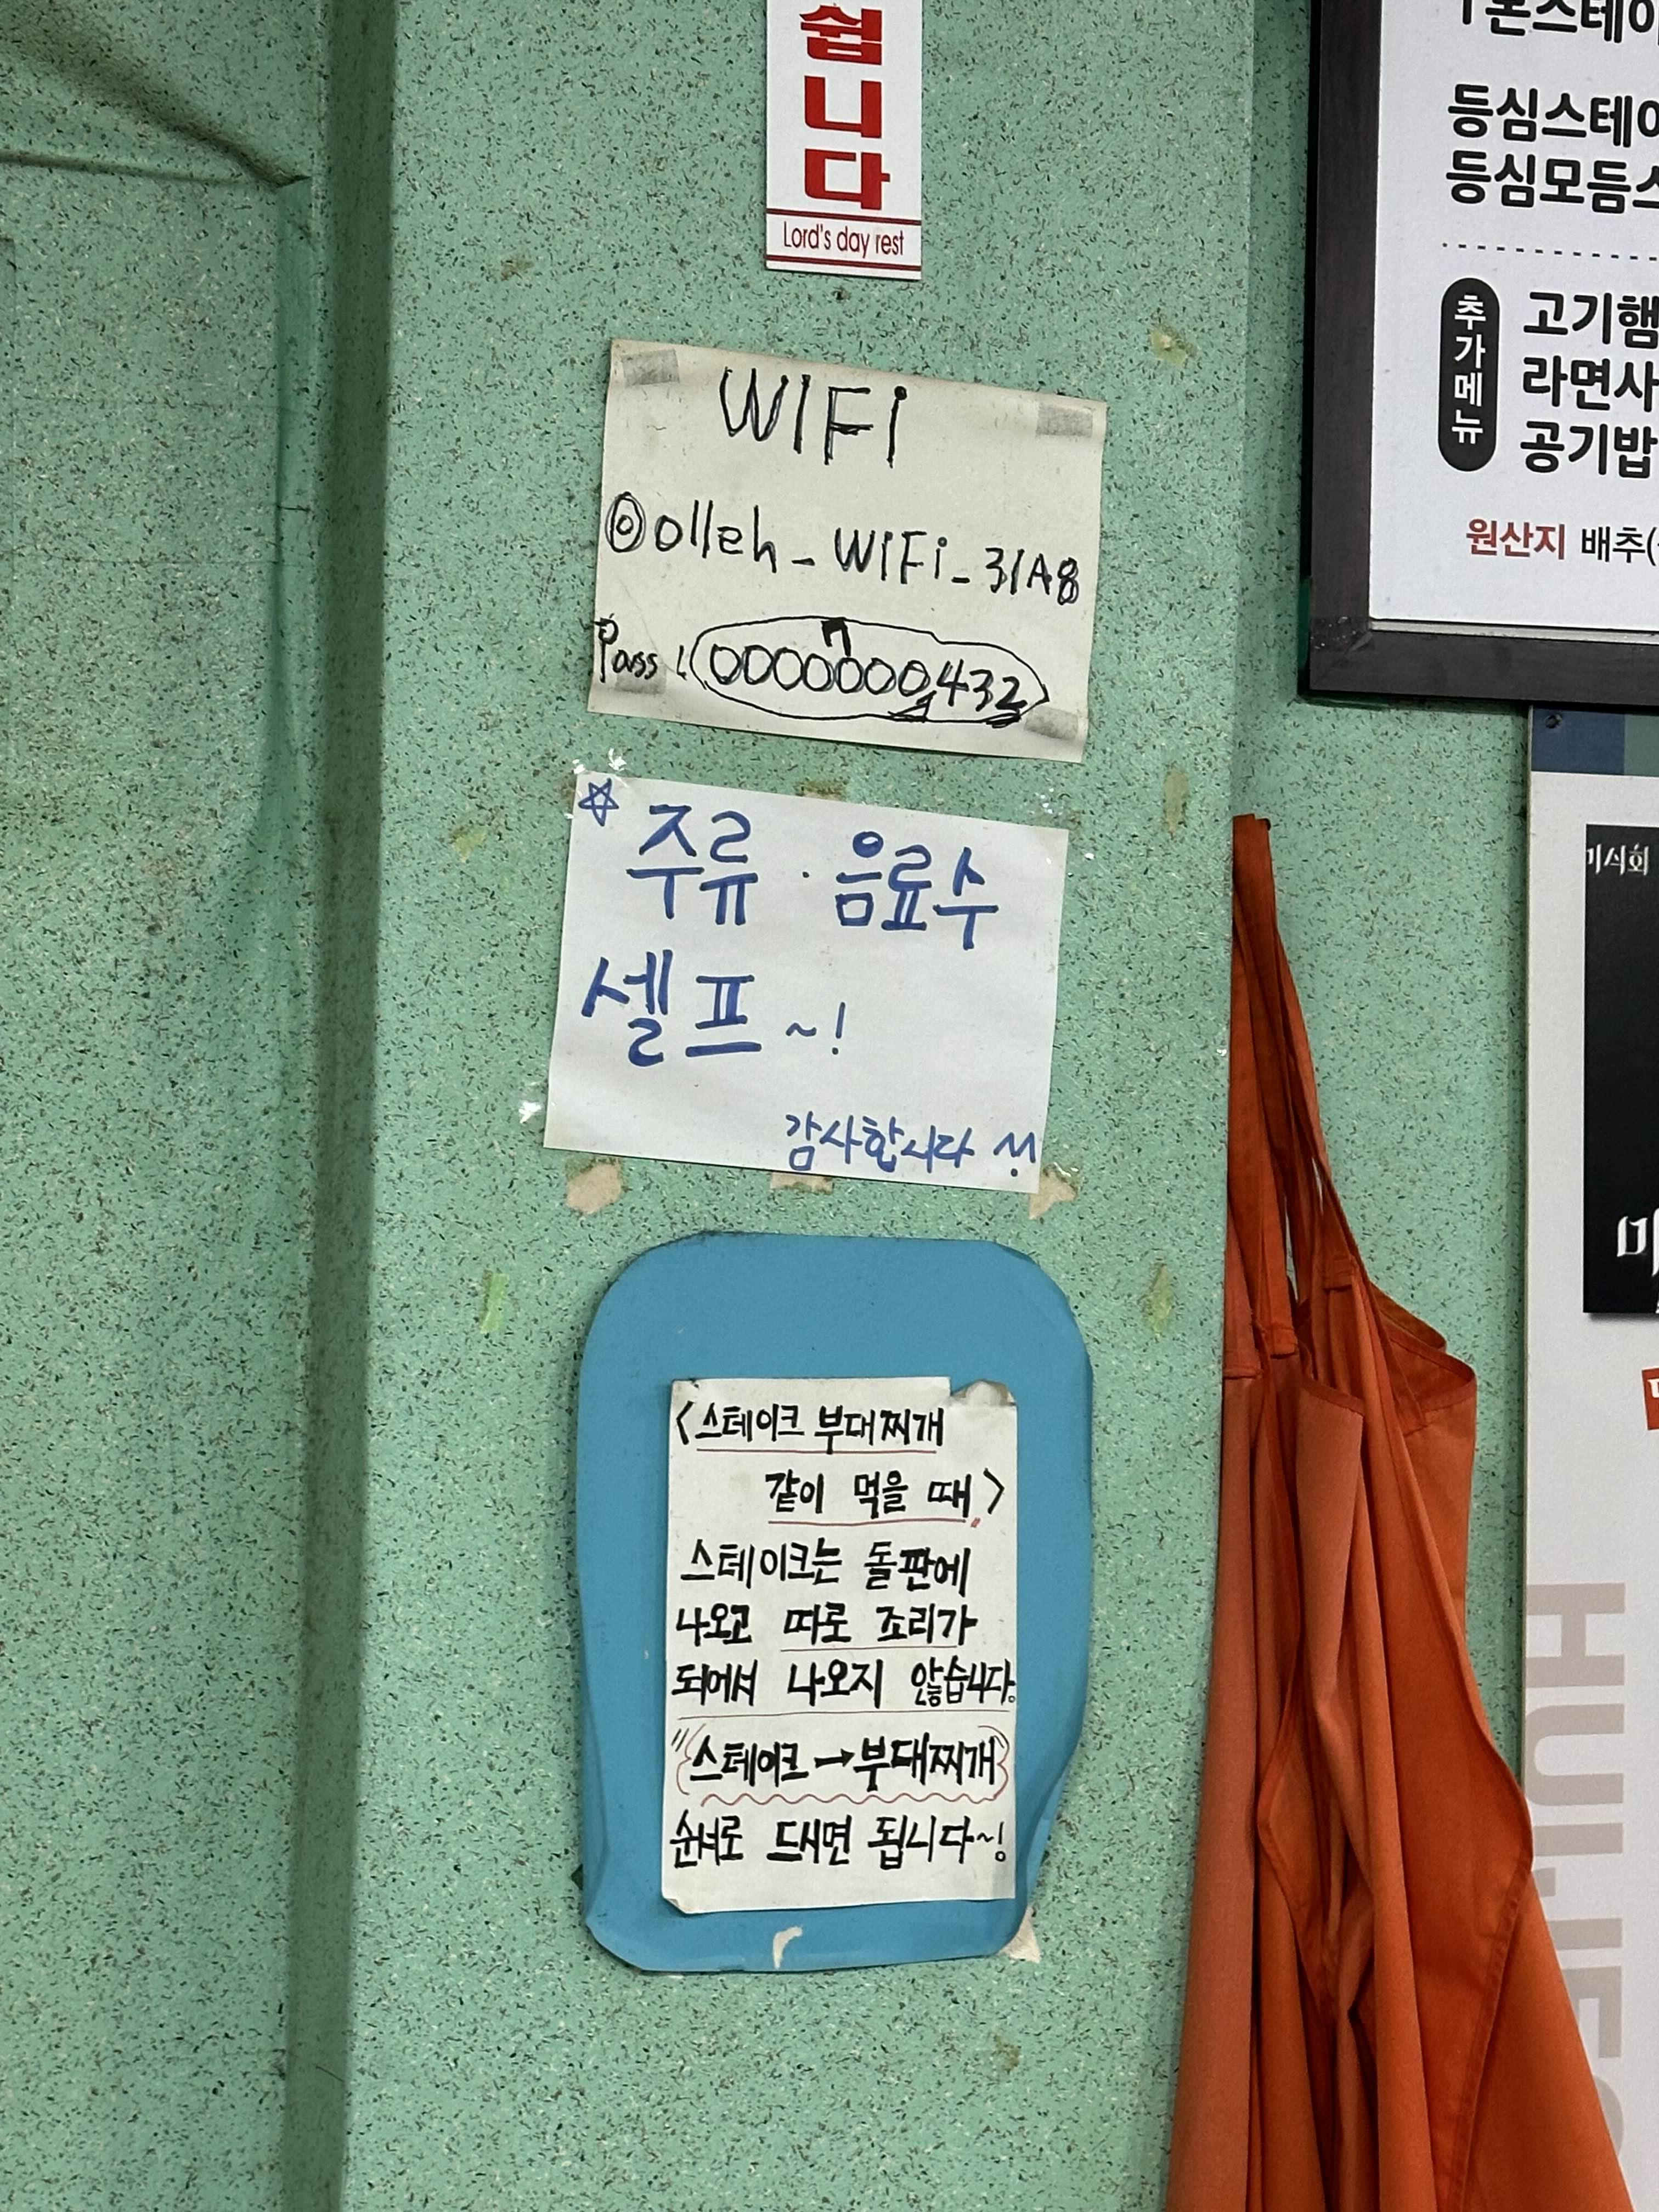 쉽
니
다
Lord's day rest
WIFi
olleh_WIFi_31A8
Pass : 0000000432
7
주류 · 음료수
셀프~!
감사합니다
<스테이크 부대찌개
같이 먹을 때>
스테이크는 돌판에
나오고 따로 조리가
되어서 나오지 않습니다.
"스테이크→부대찌개"
순서로 드시면 됩니다~!
등심스테이
등심모듬스
추가메뉴
고기햄
라면사
공기밥
원산지 배추(